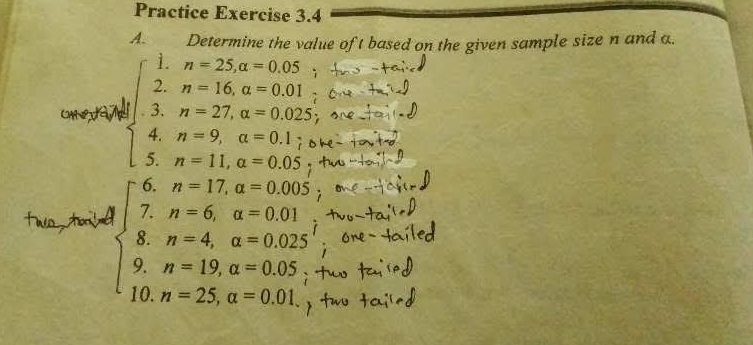 Practice Exercise 3.4
A. Determine the value of t based on the given sample size n and α.
1. n = 25, α = 0.05 ; two-tailed
2. n = 16, α = 0.01 ; one-tailed
3. n = 27, α = 0.025; one-tailed
4. n = 9, α = 0.1 ; one-tailed
5. n = 11, α = 0.05 ; two-tailed
6. n = 17, α = 0.005 ; one-tailed
two tailed
7. n = 6, α = 0.01 ; two-tailed
8. n = 4, α = 0.025 ; one-tailed
9. n = 19, α = 0.05 ; two tailed
10. n = 25, α = 0.01. ; two tailed